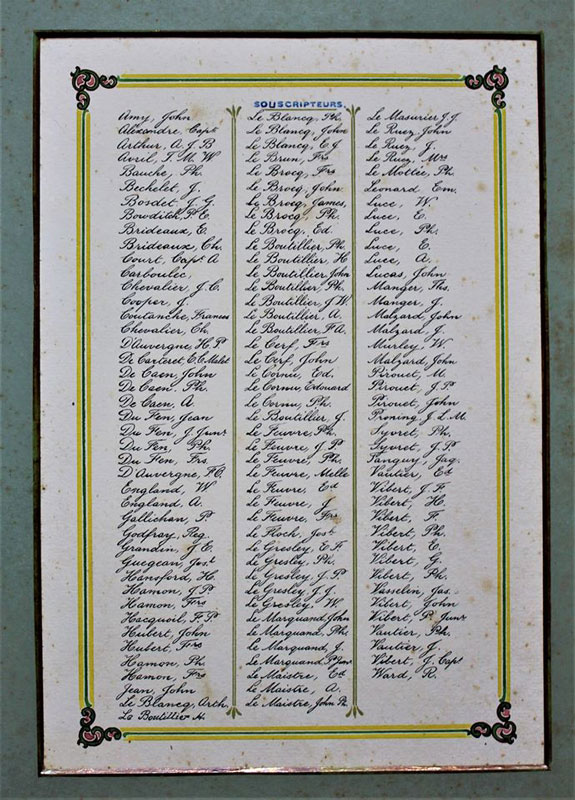 SOUSCRIPTEURS.
Amy, John
Alexandre, Capt
Arthur, A. J. B
Avril, J. M. W
Bauche, Ph.
Bechelet, J.
Bosdet, J. G.
Bowditch, P. E.
Brideaux, E.
Brideaux, Ch.
Court, Capt. A
Carboulec
Chevalier, J. C.
Cooper, J.
Coutanche, Frances
Chevalier, Ch.
D'Auvergne, H. P.
De Carteret, E. C. Malet
De Caen, John
De Caen, Ph.
De Caen, A.
Du Feu, Jean
Du Feu, J. Junr
Du Feu, Ph.
Du Feu, Frs.
D'Auvergne,
England, W
England, A.
Gallichan, P.
Godfray, Reg.
Grandin, J. E.
Guegean, Jos.t
Hansford, H.
Hamon, J. P.
Hamon, Frs
Hacquoil, F. P.
Hubert, John
Hubert, Frs
Hamon, Ph.
Hamon, Frs
Jean, John
Le Blancq, Arth.
Le Boutillier H.
Le Blancq, Ph.
Le Blancq, John
Le Blancq, E J
Le Brun, Frs
Le Brocq, Frs
Le Brocq, John
Le Brocq, James,
Le Brocq, Ph.
Le Brocq, Ed.
Le Boutillier, Ph.
Le Boutillier, H
Le Boutillier John
Le Boutillier, Ph.
Le Boutillier, J. W
Le Boutillier, A.
Le Boutillier, F A.
Le Cerf, Frs
Le Cerf, John
Le Cornu, Ed.
Le Cornu, Edouard
Le Cornu, Ph.
Le Boutillier, J.
Le Feuvre, Ph.
Le Feuvre, J. P.
Le Feuvre, Ph.
Le Feuvre, Melle
Le Feuvre, Ed
Le Feuvre, J.
Le Feuvre, Frs
Le Floch, Jos.t
Le Gresley, E. F.
Le Gresley, Ph.
Le Gresley, J. P.
Le Gresley, J. J.
Le Gresley, W.
Le Marquand, John
Le Marquand, Ph.
Le Marquand, J.
Le Marquand P. Junr
Le Maistre, Ed
Le Maistre, A.
Le Maistre, John Ph.
Le Masurier J. J.
Le Ruez, John
Le Ruez, J.
Le Ruez, Mrs
Le Mottée, Ph.
Leonard Em.
Luce, W
Luce, E.
Luce, Ph.
Luce, E.
Luce, A.
Lucas, John
Manger, Ths.
Manger, J.
Malzard, John
Malzard, J.
Murley, W
Malzard, John
Pirouet, M.
Pirouet, J. P.
Pirouet, John
Proning J. L. M.
Syvret, Ph.
Syvret, J. P.
Tanguy, Jaq.
Vautier, Ed
Vibert, J. F.
Vibert, H.
Vibert, F.
Vibert, Ph.
Vibert, E.
Vibert, G.
Vibert, Ph.
Vasselin, Jas.
Vibert, John
Vibert, P. Junr
Vautier, Ph.
Vautier, J.
Vibert, J. Capt
Ward, R.